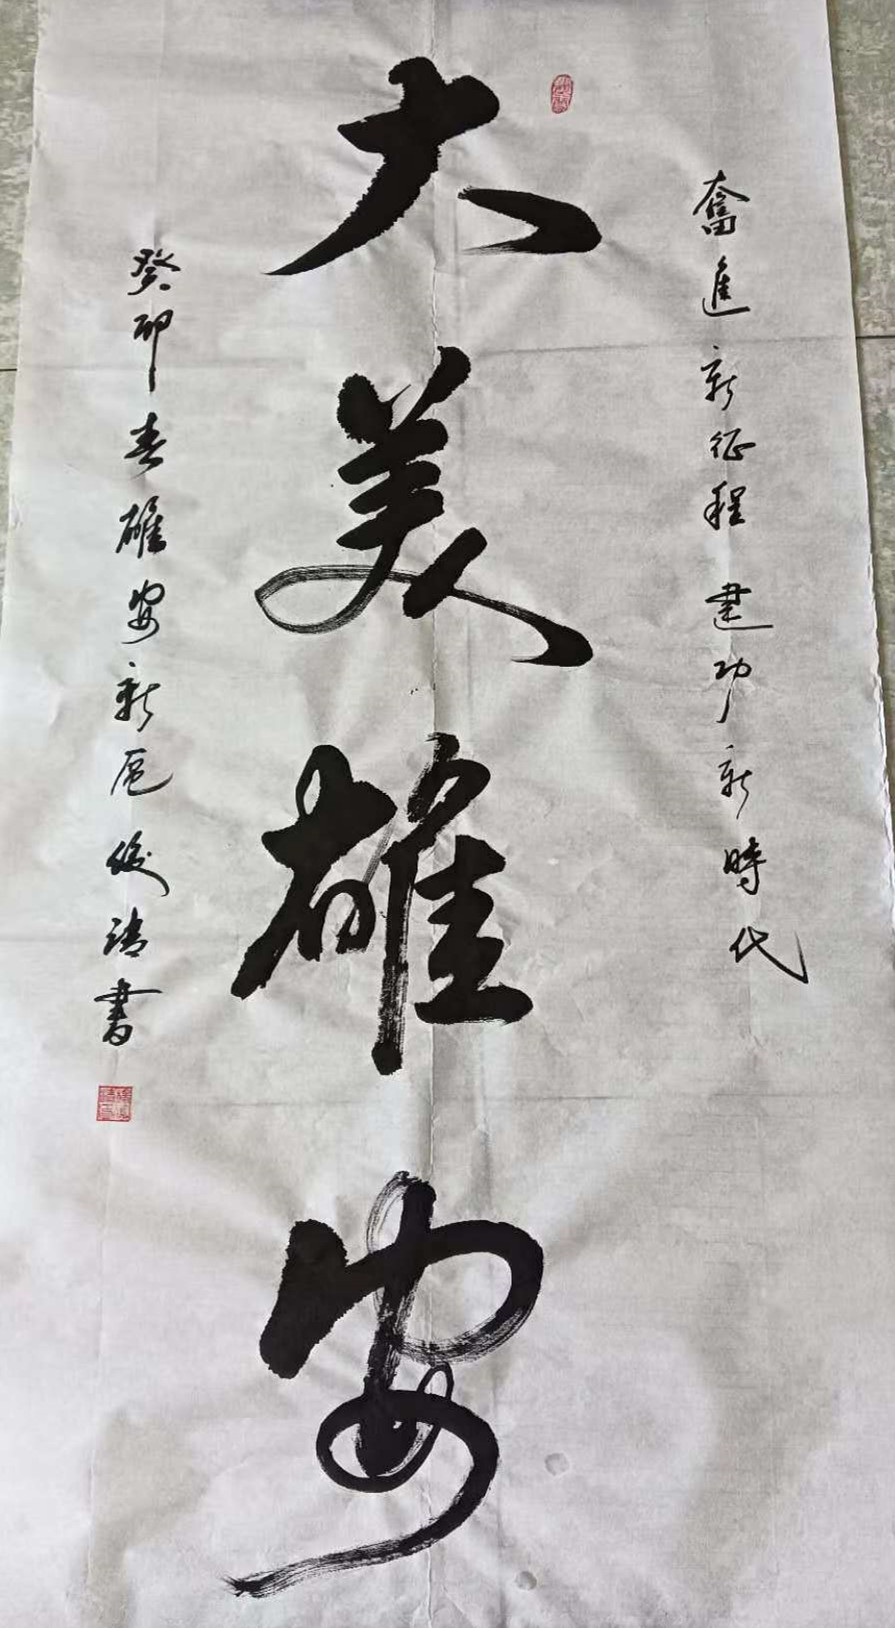 奮進新征程 建功新時代
大美雄安
癸卯春雄安新區俊清書